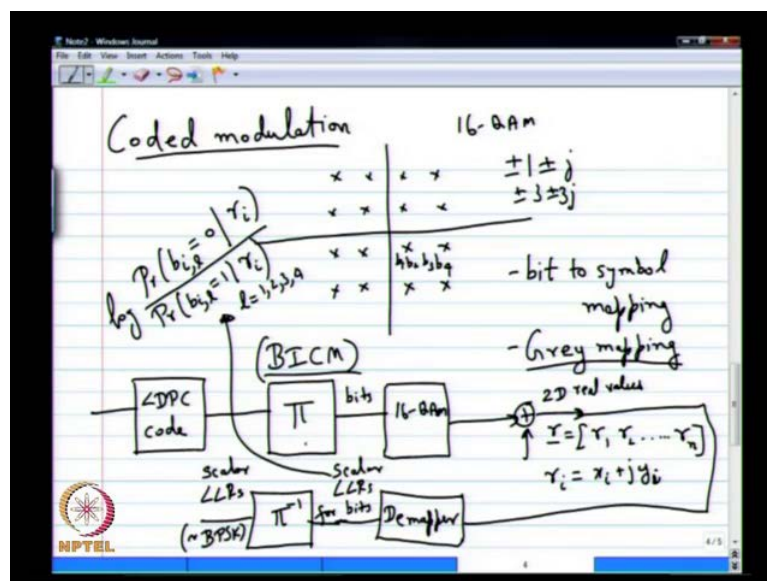 Note2 - Windows Journal
File Edit View Insert Actions Tools Help
Coded modulation
16-QAM
±1 ± j
±3 ±3j
log Pr(b_{i,l} = 0 | r_i) / Pr(b_{i,l} = 1 | r_i)
l = 1,2,3,4
b1 b2 b3 b4
- bit to symbol
mapping
- Grey mapping
(BICM)
LDPC
code
Π
bits
16-QAM
+
2D real values
r = [r_1 r_2 ..... r_n]
r_i = x_i + j y_i
scalar
LLRs
(~BPSK)
Π^{-1}
scalar
LLRs
for bits
Demapper
NPTEL
4
4/5